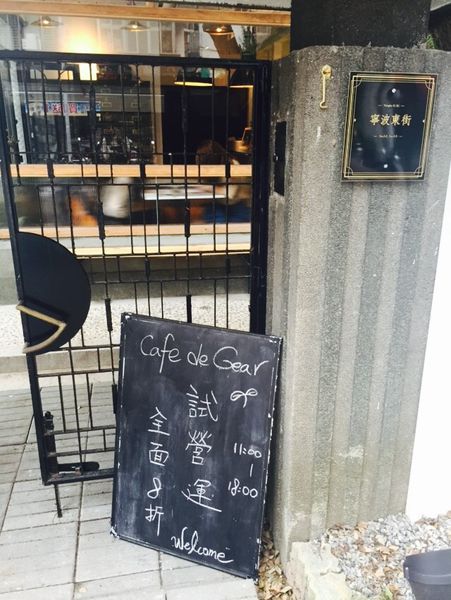 寧波東街
Cafe de Gear
試營運
全面8折
11:00
|
18:00
Welcome